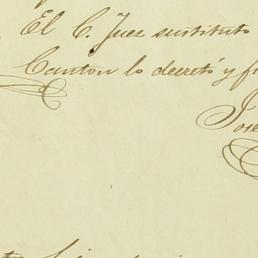 El C. Juez sustituto
Canton lo decretó y fi
Jose